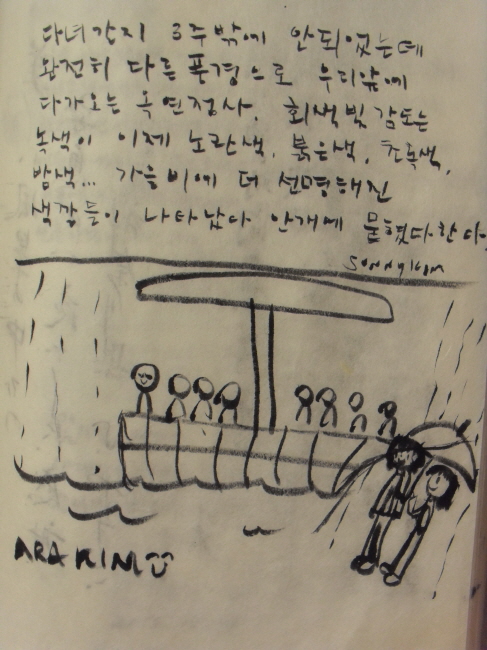 다녀간지 3주밖에 안되었는데
완전히 다른 풍경으로 우리앞에
다가오는 옥연정사. 회색빛 감도는
녹색이 이제 노란색, 붉은색, 초록색,
밤색... 가을비에 더 선명해진
색깔들이 나타났다 안개에 묻혔다한다.
sunnykim
ARA KIM